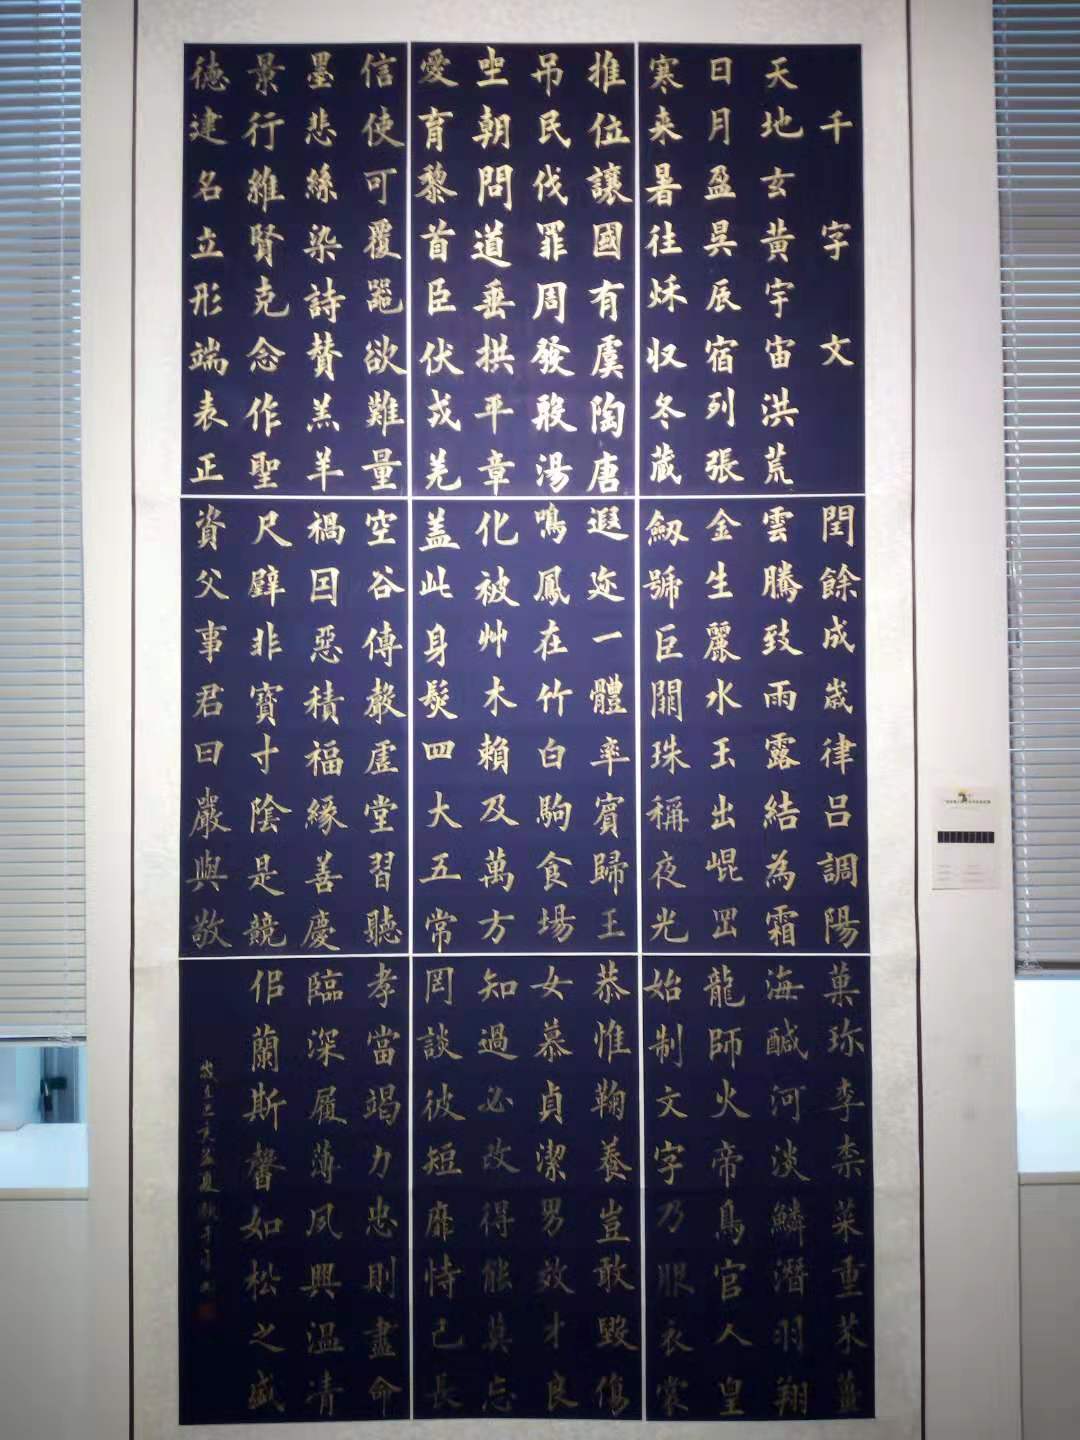 千字文
天地玄黃宇宙洪荒
日月盈昃辰宿列張
寒来暑往秌収冬蔵
閏餘成歲律呂調陽
雲騰致雨露結為霜
金生麗水玉出崐岡
劔號巨闕珠稱夜光
菓珎李柰菜重芥薑
海鹹河淡鱗潛羽翔
龍師火帝鳥官人皇
始制文字乃服衣裳
推位讓國有虞陶唐
吊民伐罪周發殷湯
坐朝問道垂拱平章
愛育黎首臣伏戎羌
遐迩一體率賓歸王
鳴鳳在竹白駒食場
化被艸木賴及萬方
蓋此身髮四大五常
恭惟鞠養豈敢毀傷
女慕貞潔男效才良
知過必改得能莫忘
罔談彼短靡恃己長
信使可覆器欲難量
墨悲絲染詩賛羔羊
景行維賢克念作聖
徳建名立形端表正
空谷傳聲虛堂習聽
禍因惡積福緣善慶
尺璧非寶寸陰是競
資父事君曰嚴與敬
孝當竭力忠則盡命
臨深履薄夙興溫凊
佀蘭斯馨如松之盛
歲在己亥孟夏